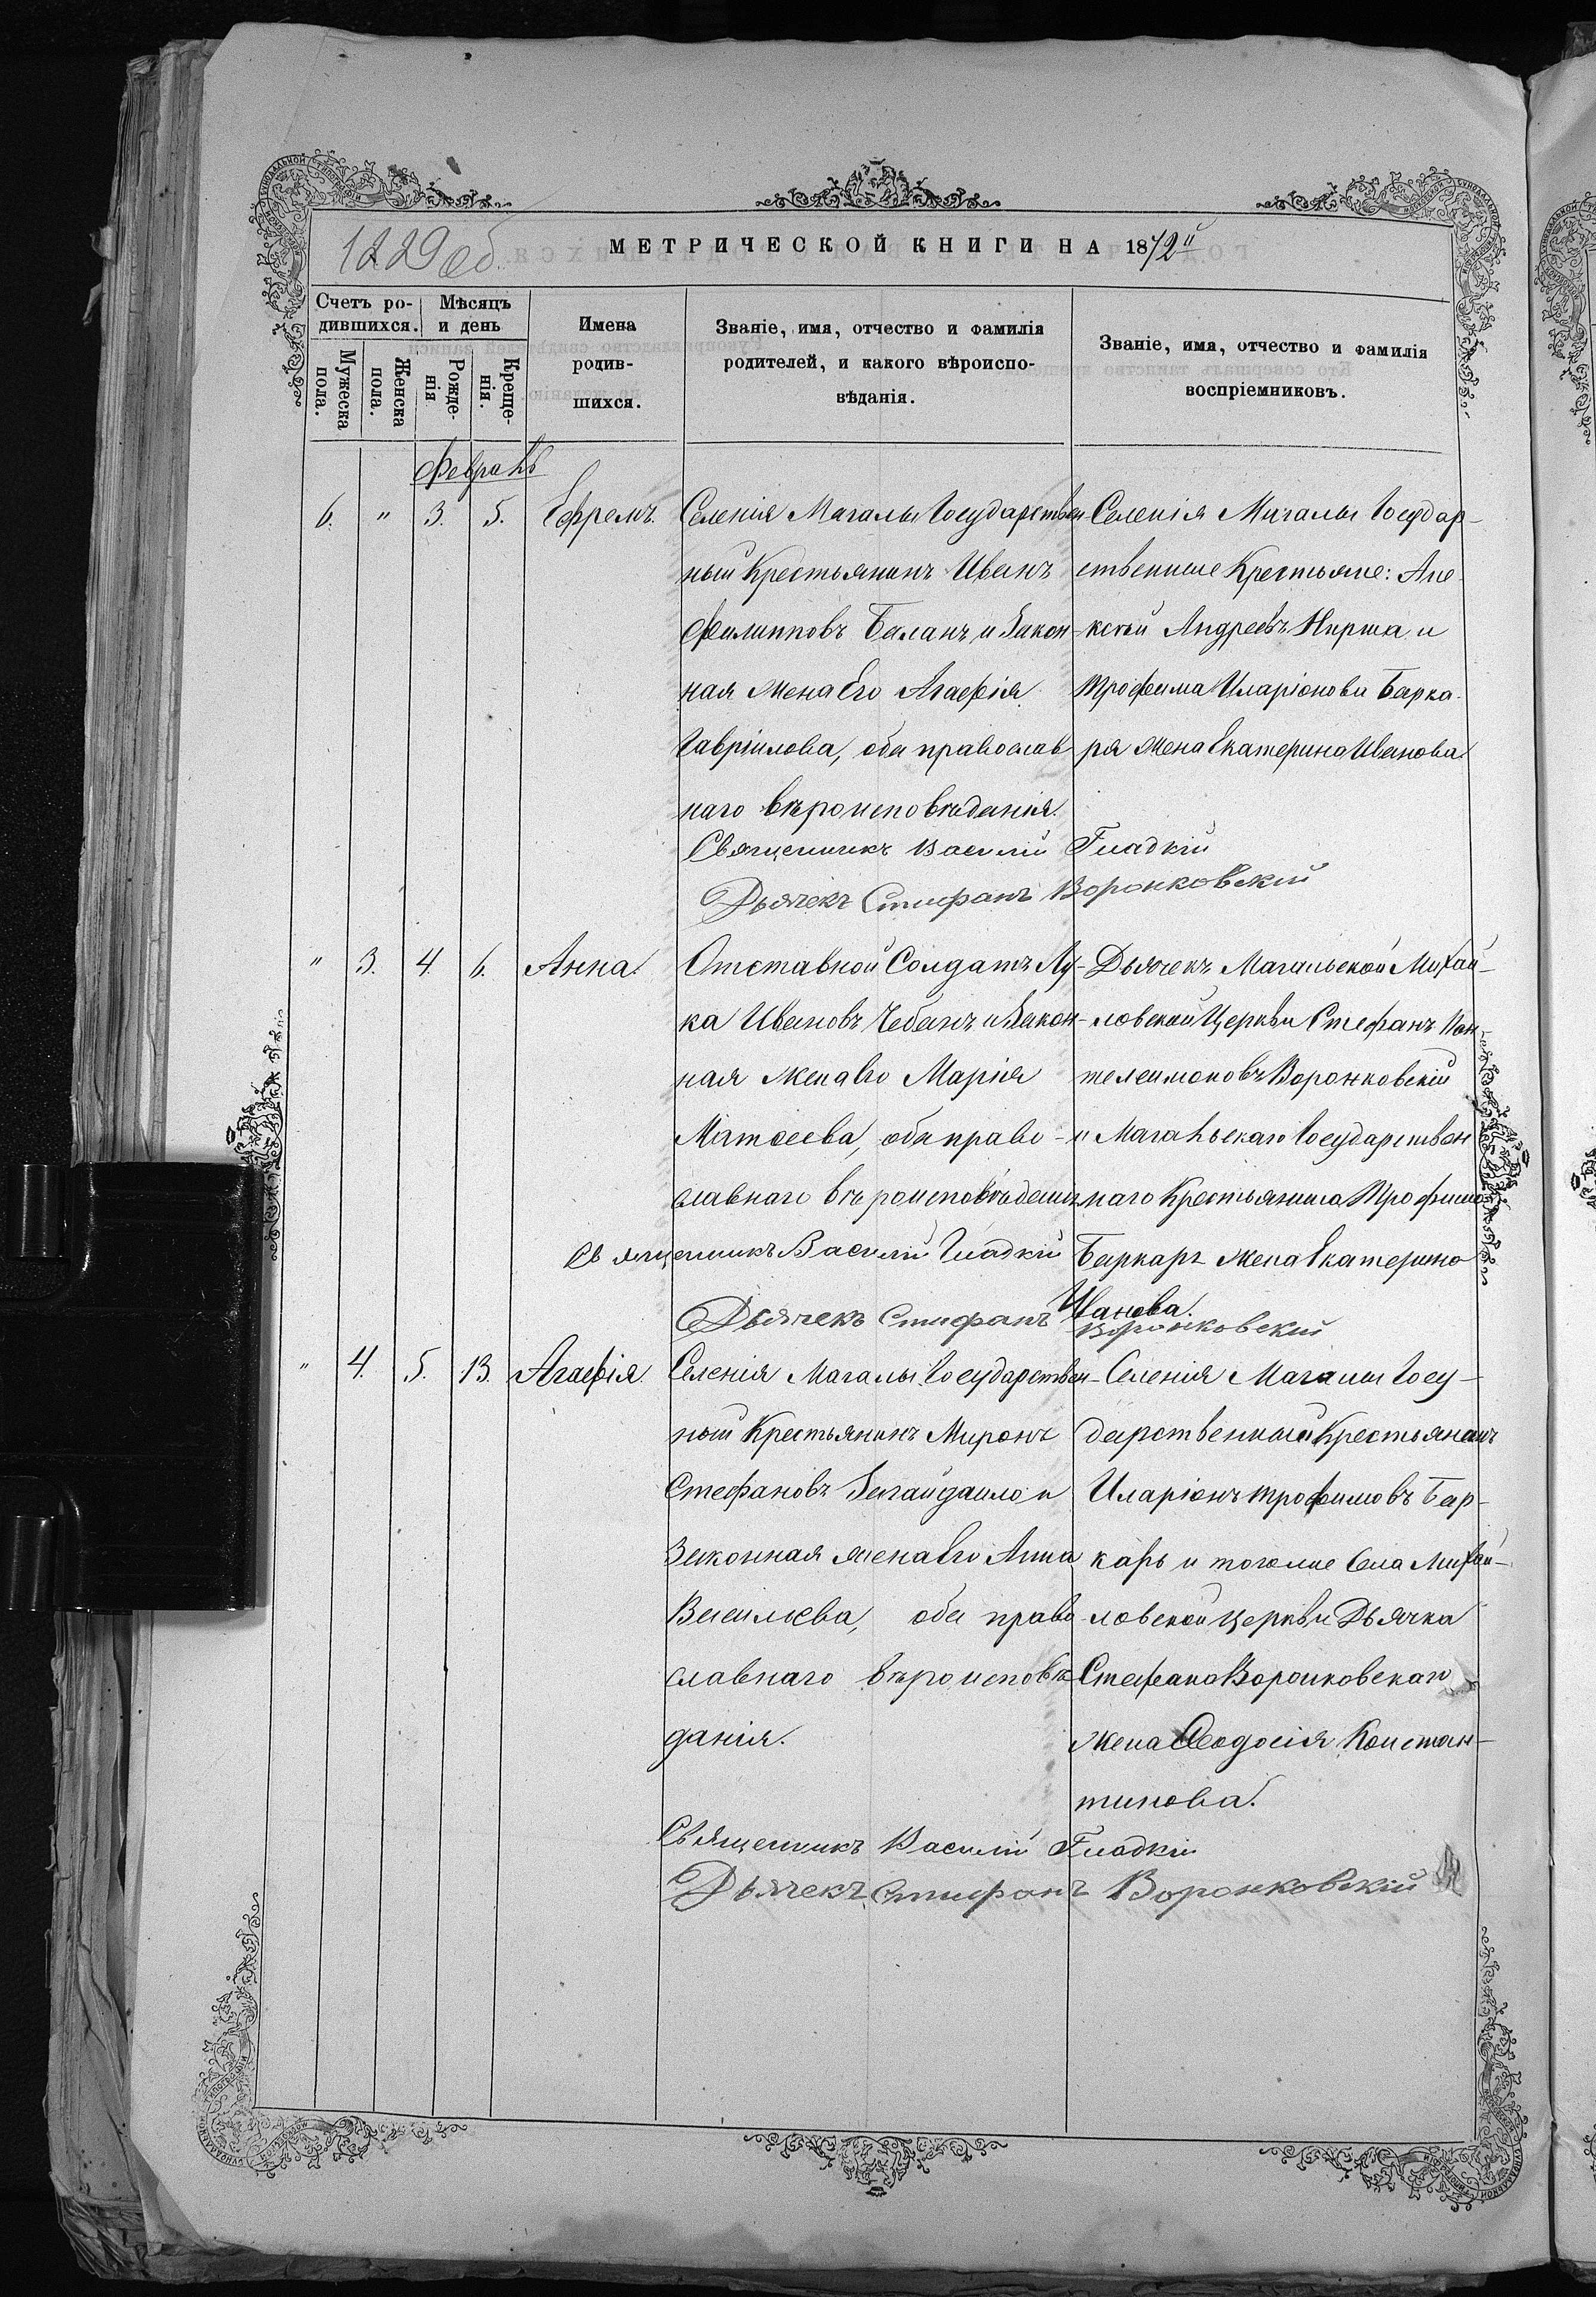 1229 об.
МЕТРИЧЕСКОЙ КНИГИ НА 1872й
Счетъ ро-
дившихся.
Мѣсяцъ
и день
Мужеска
пола.
Женска
пола.
Рожде-
нія
Креще-
нія.
Имена
родив-
шихся.
Званіе, имя, отчество и фамилія
родителей, и какого вѣроиспо-
вѣданія.
Званіе, имя, отчество и фамилія
воспріемниковъ.
Февраль
6. " 3. 5. Ефремъ.
Селенія Магалы Государствен-
ный Крестьянинъ Иванъ
Филипповъ Баланъ и Закон-
ная Жена Его Агафія
Гавріилова, оба православ-
наго вѣроисповѣданія.
Селенія Магалы Государ-
ственные Крестьяне: Але-
ксѣй Андреевъ Кирша и
Трофима Иларіонова Барка-
ря Жена Екатерина Иванова
Священникъ Василій Гладкій
Дьячекъ Стефанъ Воронковскій
" 3. 4. 6. Анна.
Отставной Солдатъ Лу-
ка Ивановъ Чебанъ и Закон-
ная жена Его Марія
Матѳеева, оба право-
славнаго вѣроисповѣданія
Дьячекъ Магальской Михай-
ловской Церкви Стефанъ Пан-
телеимоновъ Воронковскій
и Магальскаго Государствен
наго Крестьянина Трофима
Баркаръ жена Екатерина
Иванова.
Священникъ Василій Гладкій
Дьячекъ Стефанъ Воронковскій
" 4. 5. 13. Агафія.
Селенія Магалы Государствен-
ный Крестьянинъ Миронъ
Стефановъ Загайдаило и
Законная жена Его Анна
Васильева, оба право
славнаго вѣроисповѣ
данія.
Селенія Магалы Госу-
дарственный Крестьянинъ
Иларіонъ Трофимовъ Бар-
карь и тогоже Села Михай-
ловской церкви Дьячка
Стефана Воронковскаго
жена Ѳеодосія Констан-
тинова.
Священникъ Василій Гладкій
Дьячекъ Стефанъ Воронковскій